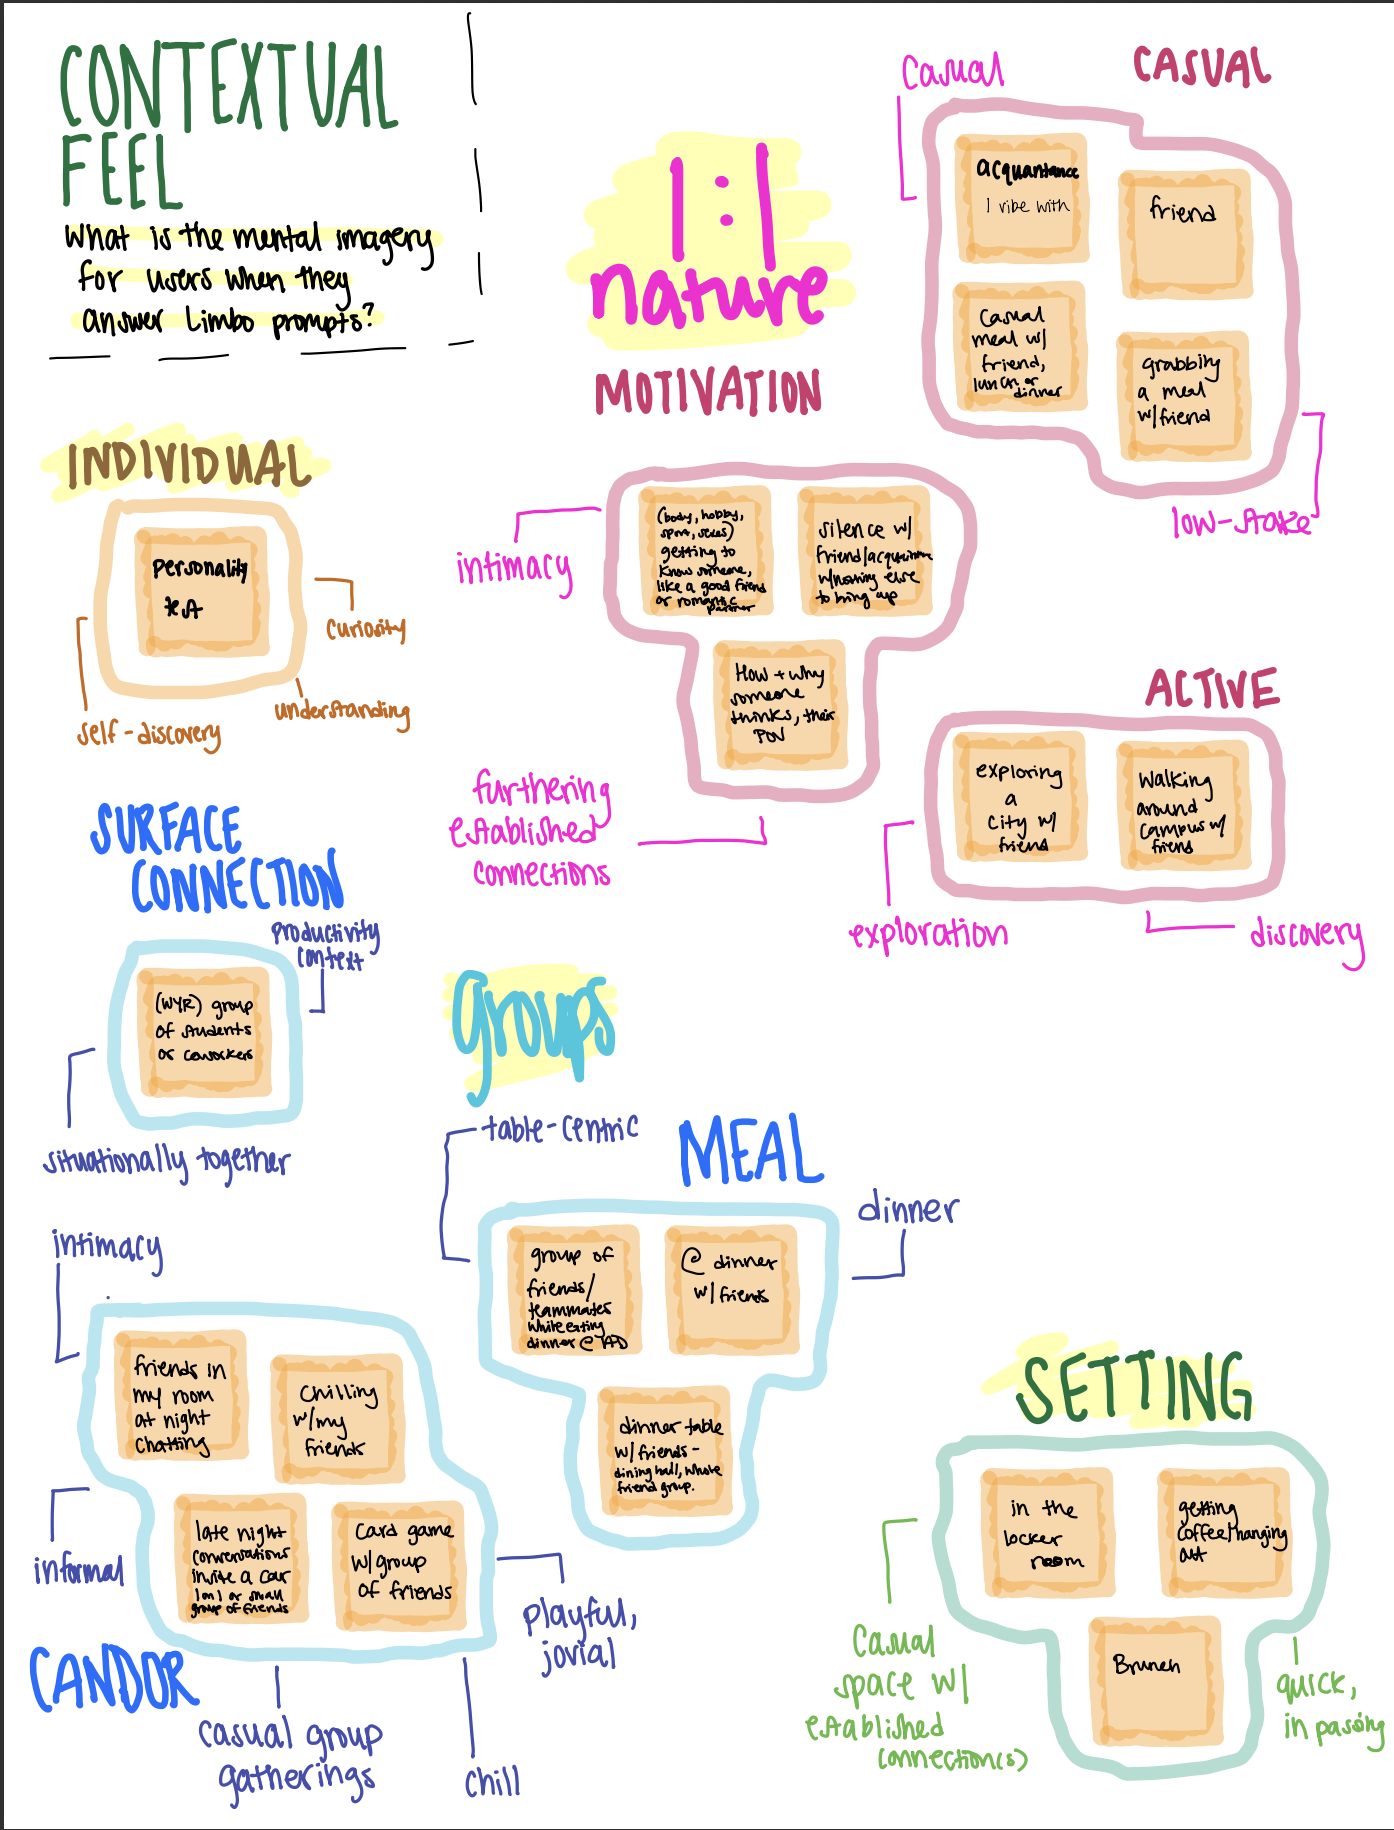 CONTEXTUAL
FEEL
What is the mental imagery
for users when they
answer Limbo prompts?
INDIVIDUAL
Personality
test
curiosity
understanding
self-discovery
1:1
nature
MOTIVATION
intimacy
(body, hobby,
getting to
know someone,
like a good friend
or romantic
partner
silence w/
friend/
w/nothing else
to bring up
How + why
someone
thinks, their
POV
furthering
established
connections
CASUAL
Casual
acquantance
I vibe with
friend
Casual
meal w/
friend,
lunch or
dinner
grabbing
a meal
w/friend
low-stake
ACTIVE
exploring
a
city w/
friend
Walking
around
campus w/
friend
exploration
discovery
SURFACE
CONNECTION
productivity
context
(WYR) group
of students
or coworkers
situationally together
groups
MEAL
table-centric
dinner
group of
friends/
teammates
while eating
dinner @
@ dinner
w/friends
dinner table
w/friends -
dining hall, whole
friend group.
intimacy
friends in
my room
at night
chatting
Chilling
w/my
friends
late night
conversations
a car
1 on 1 or small
group of friends
Card game
w/group
of friends
informal
CANDOR
casual group
gatherings
chill
playful,
jovial
SETTING
in the
locker
room
getting
coffee/hanging
out
Brunch
Casual
space w/
established
connection(s)
quick,
in passing